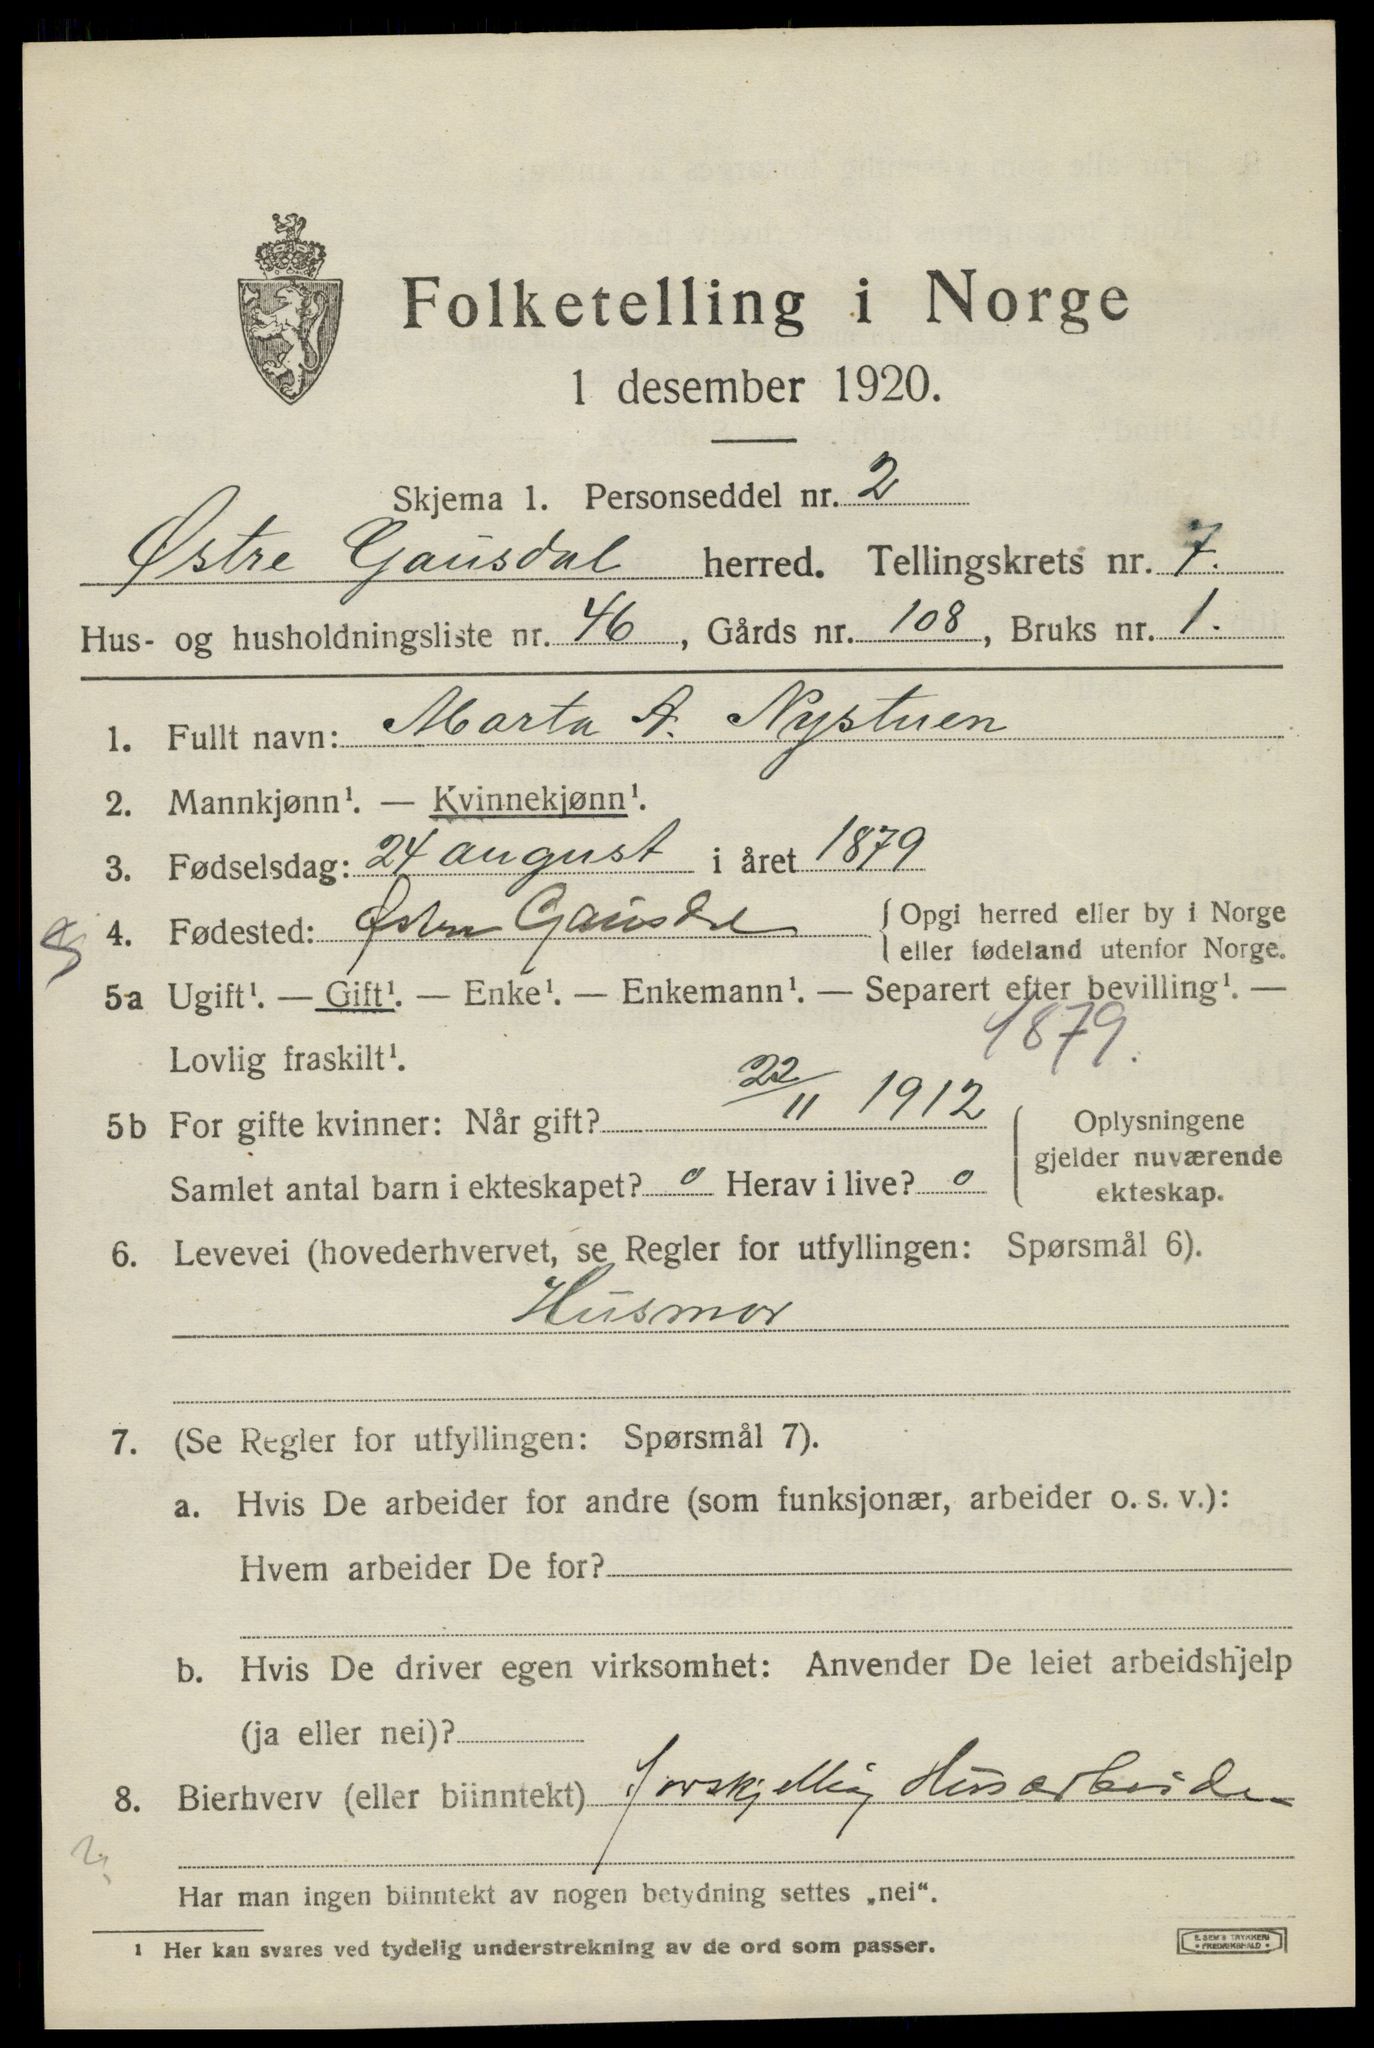 Folketelling i Norge
1 desember 1920.
Skjema 1. Personseddel nr. 2
Østre Gausdal herred. Tellingskrets nr. 7.
Hus- og husholdningsliste nr. 46, Gårds nr. 108, Bruks nr. 1.
1. Fullt navn: Marta A. Nystuen
2. Mannkjønn¹. — Kvinnekjønn¹.
3. Fødselsdag: 24 august i året 1879
4. Fødested: Østre Gausdal { Opgi herred eller by i Norge
eller fødeland utenfor Norge.
5a Ugift¹. — Gift¹. — Enke¹. — Enkemann¹. — Separert efter bevilling¹. —
Lovlig fraskilt¹. 1879.
5b For gifte kvinner: Når gift? 22/11 1912 ( Oplysningene
gjelder nuværende
Samlet antal barn i ekteskapet? 0 Herav i live? 0 ekteskap.
6. Levevei (hovederhvervet, se Regler for utfyllingen: Spørsmål 6).
Husmor
7. (Se Regler for utfyllingen: Spørsmål 7).
a. Hvis De arbeider for andre (som funksjonær, arbeider o. s. v.):
Hvem arbeider De for?
b. Hvis De driver egen virksomhet: Anvender De leiet arbeidshjelp
(ja eller nei)?
8. Bierhverv (eller biinntekt) forskjellig Husarbeide
Har man ingen biinntekt av nogen betydning settes „nei“.
¹ Her kan svares ved tydelig understrekning av de ord som passer.
E. SEM'S TRYKKERI
• FREDRIKSHALD •